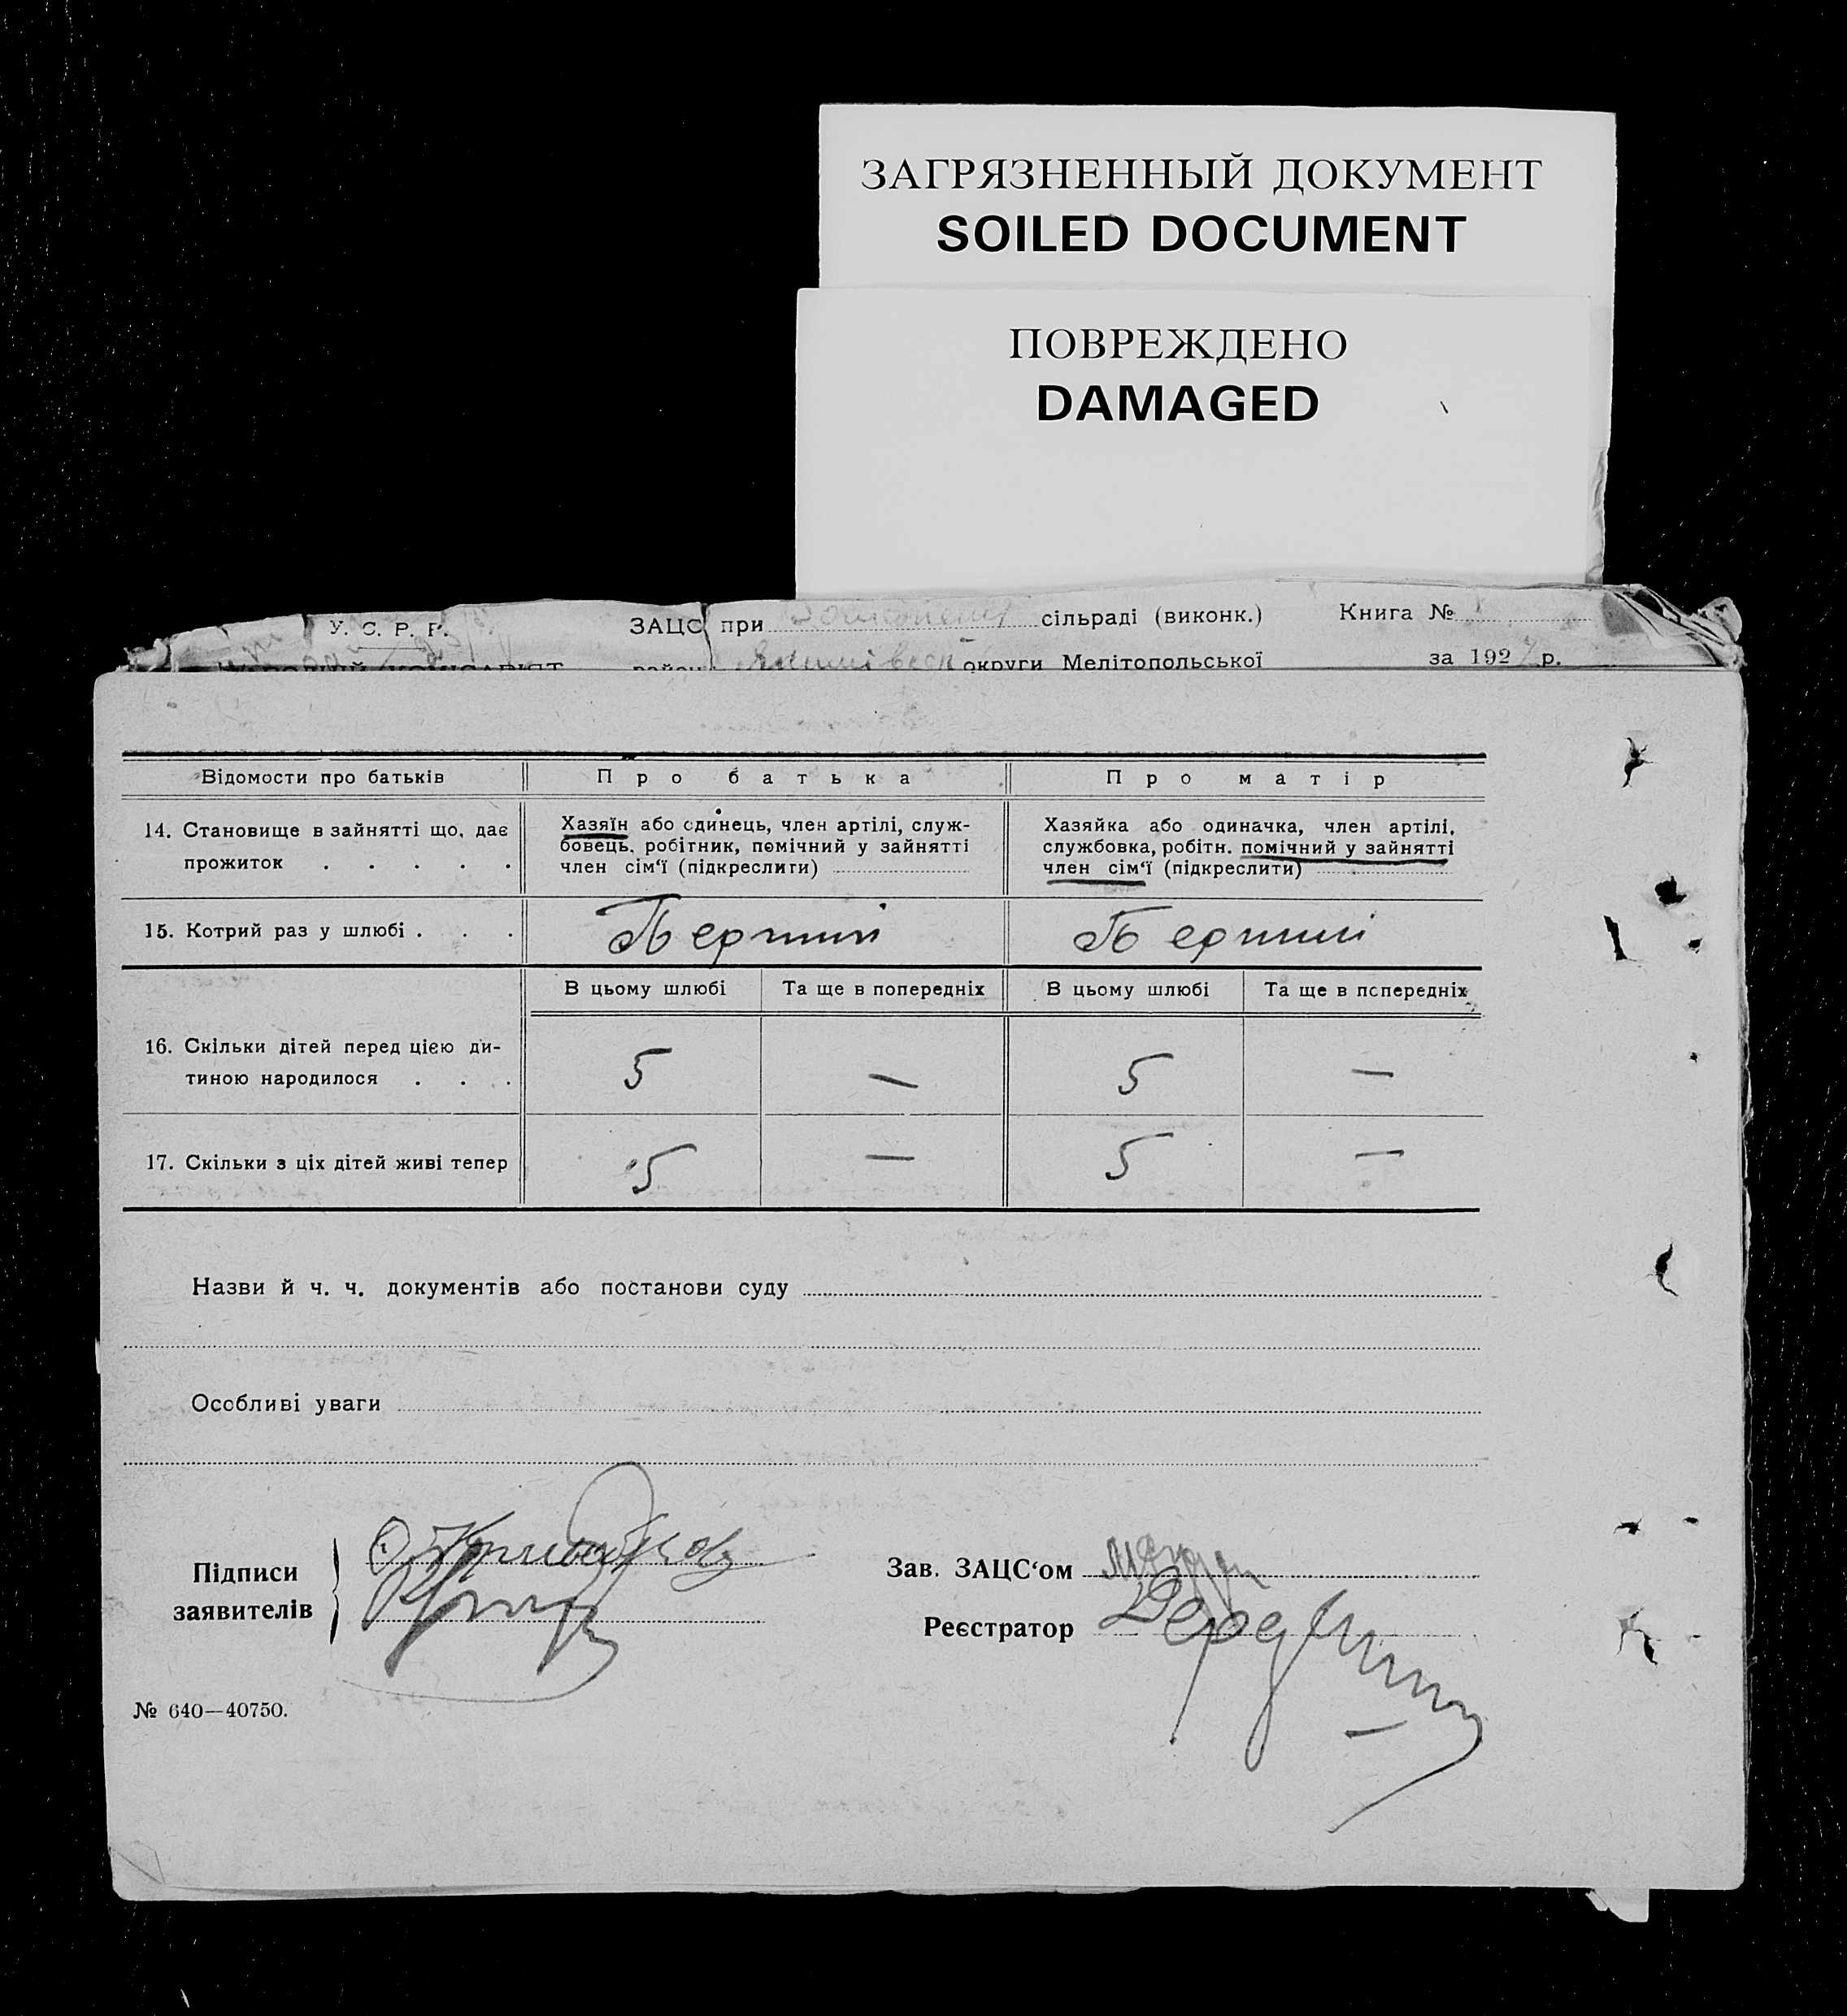 ЗАГРЯЗНЕННЫЙ ДОКУМЕНТ
SOILED DOCUMENT
ПОВРЕЖДЕНО
DAMAGED
У. С. Р. Р. ЗАЦС при сільраді (виконк.) Книга №
округи Мелітопольської за 1927 р.
Відомости про батьків Про батька Про матір
14. Становище в зайнятті що, дає Хазяїн або одинець, член артілі, служ- Хазяйка або одиначка, член артілі,
прожиток . . . . . бовець, робітник, помічний у зайнятті службовка, робітн. помічний у зайнятті
член сім‘ї (підкреслити) член сім‘ї (підкреслити)
15. Котрий раз у шлюбі . . . Перший Перший
В цьому шлюбі Та ще в попередніх В цьому шлюбі Та ще в попередніх
16. Скільки дітей перед цією ди-
тиною народилося . . . 5 — 5 —
17. Скільки з ціх дітей живі тепер 5 — 5 —
Назви й ч. ч. документів або постанови суду
Особливі уваги
Підписи
заявителів
Зав. ЗАЦС‘ом
Реєстратор
№ 640—40750.